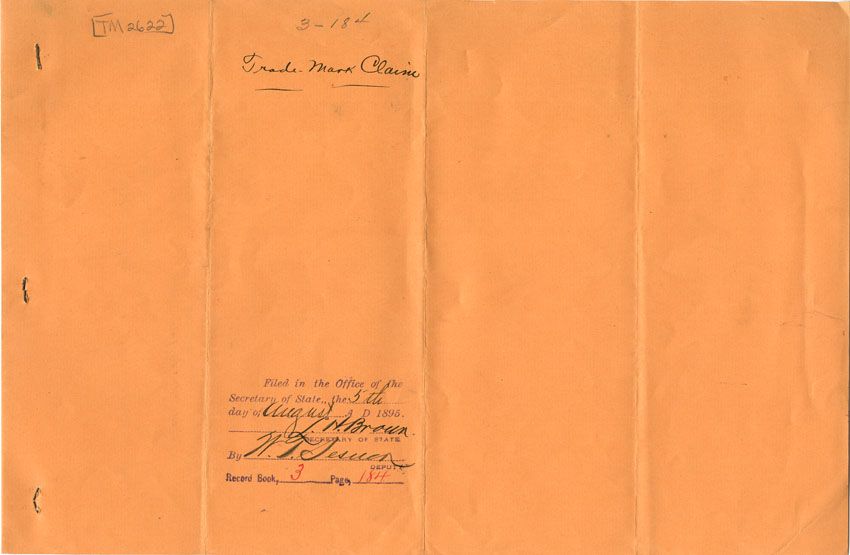 [TM 2622]
3-184
Trade-Mark Claim
Filed in the Office of the
Secretary of State, the 5th
day of August A D 1895.
L. H. Brown.
SECRETARY OF STATE
By W. T.
DEPUTY
Record Book, 3 Page, 184